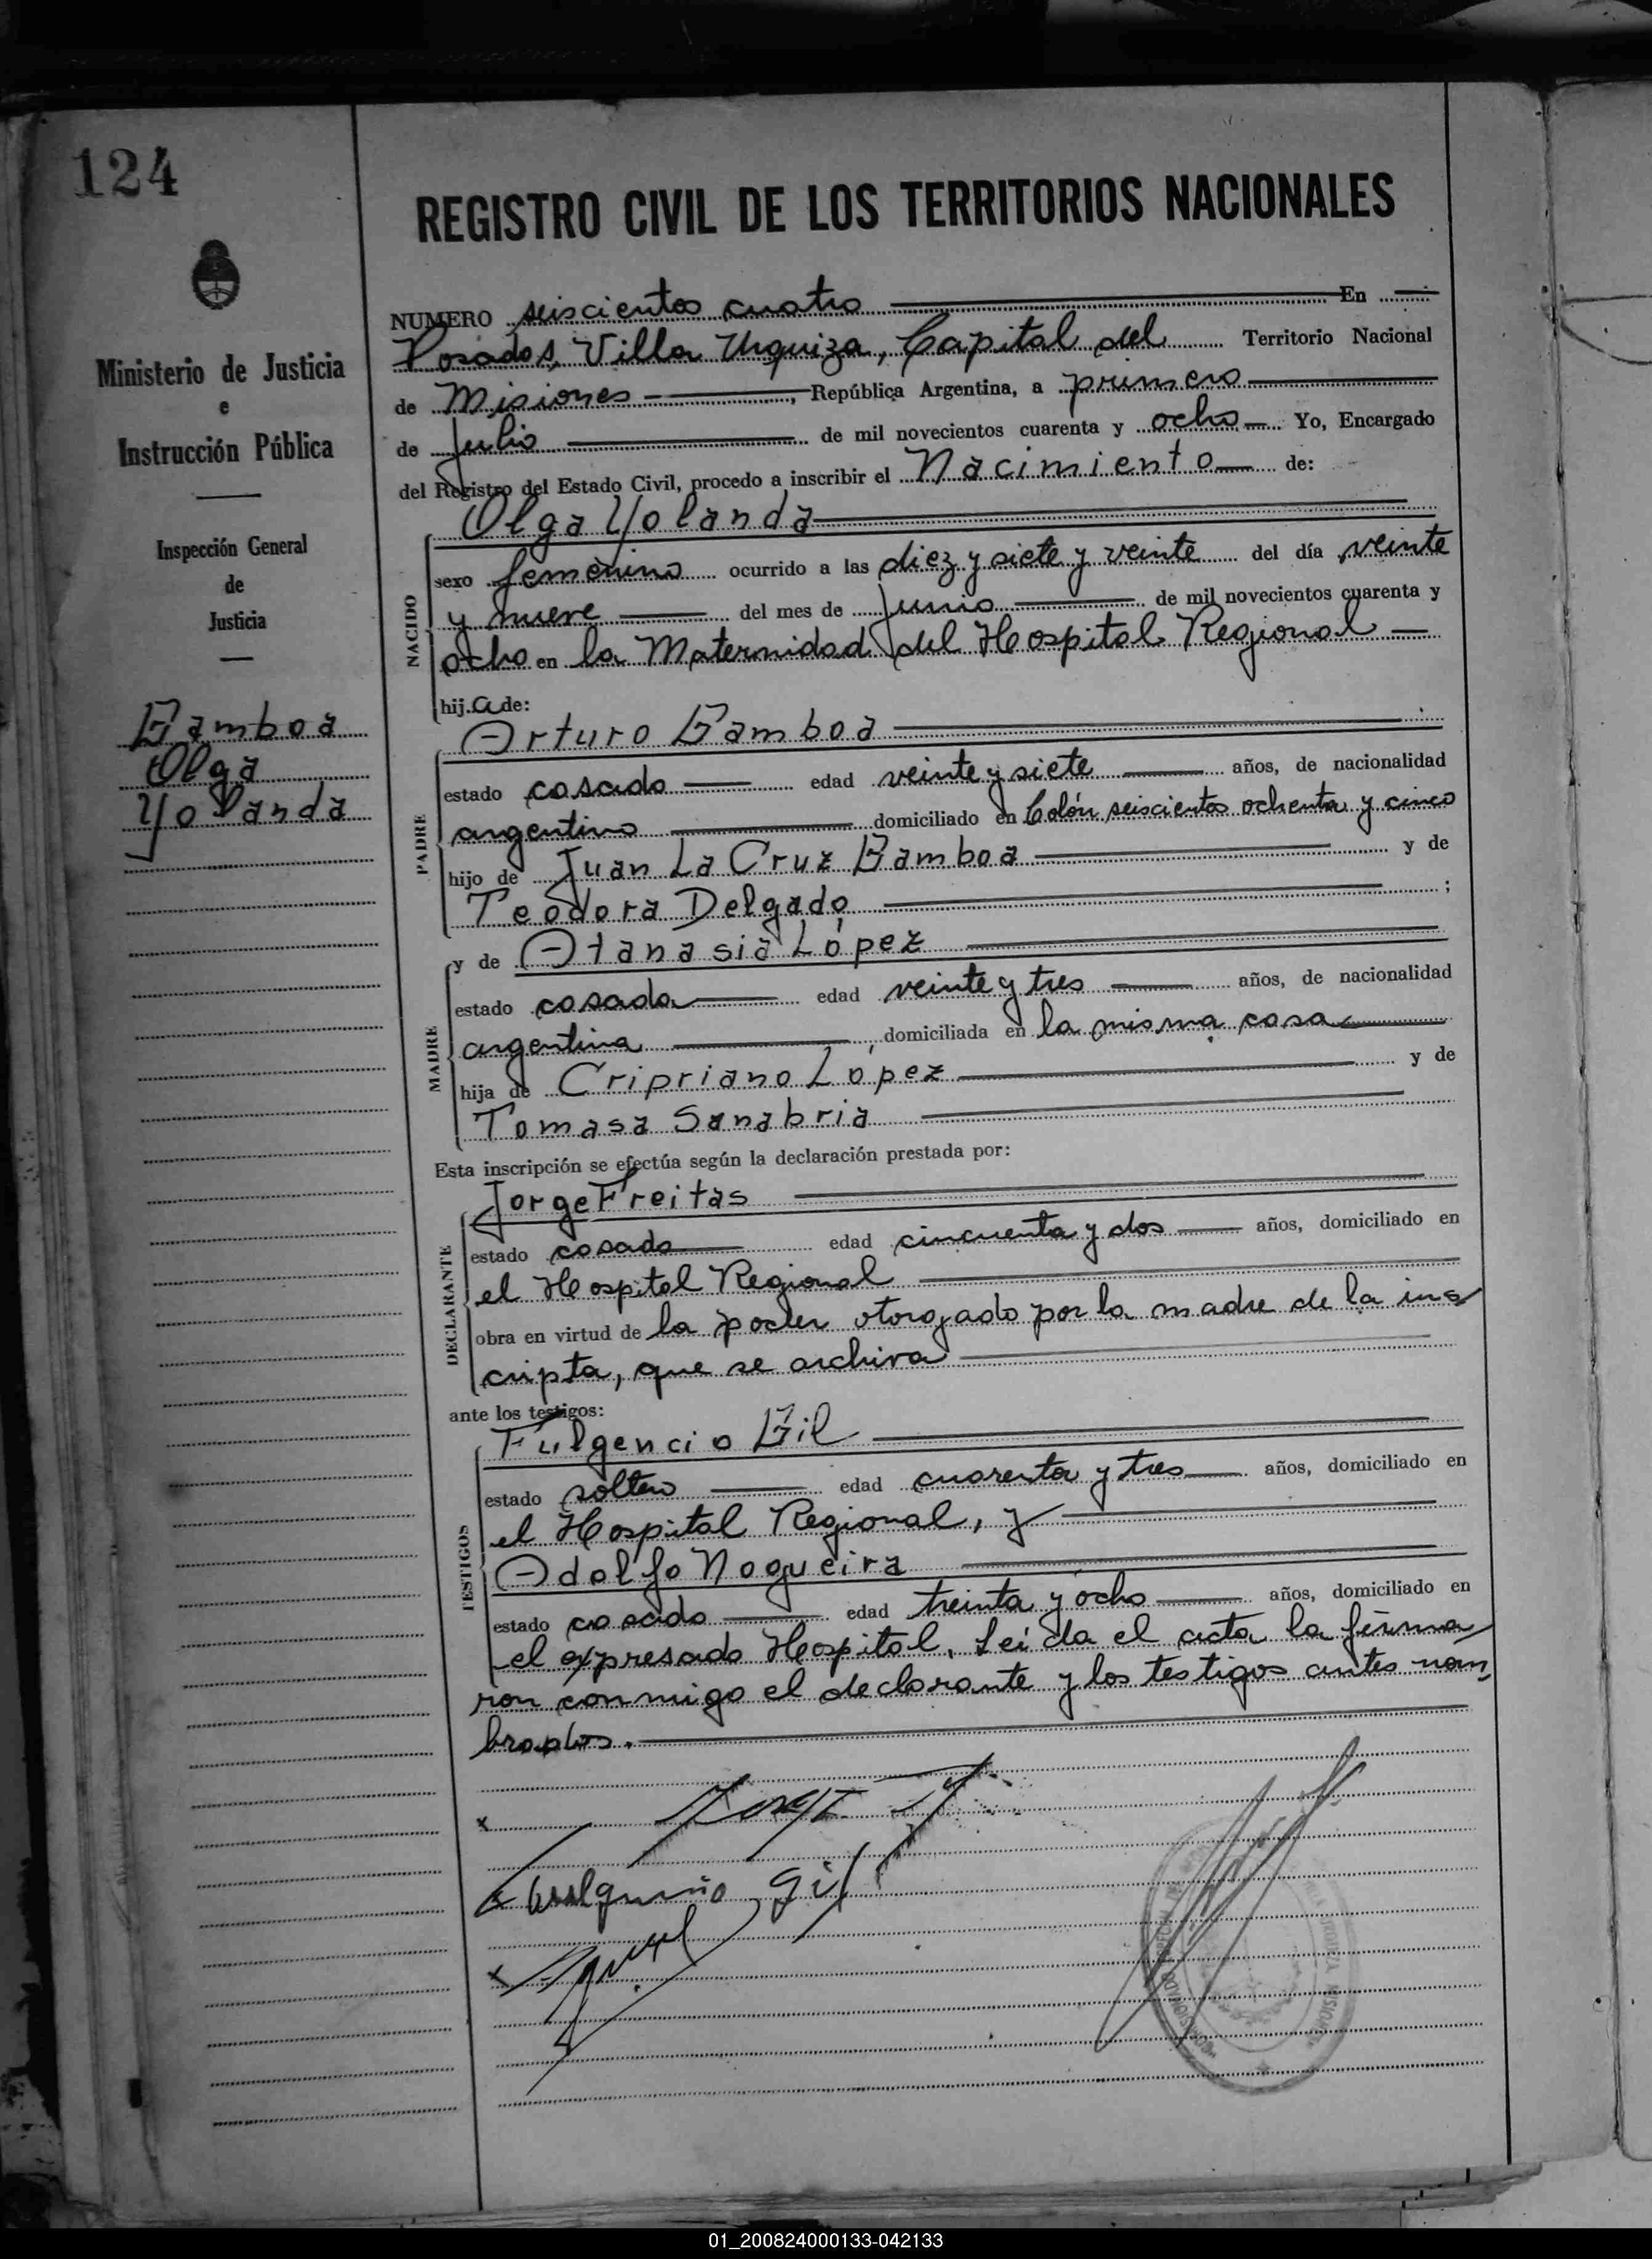 124
REGISTRO CIVIL DE LOS TERRITORIOS NACIONALES
Ministerio de Justicia
e
Instrucción Pública
Inspección General
de
Justicia
Gamboa
Olga
Yolanda
NUMERO seiscientos cuatro En
Posadas, Villa Urquiza, Capital del Territorio Nacional
de Misiones, República Argentina, a primero
de Julio de mil novecientos cuarenta y ocho Yo, Encargado
del Registro del Estado Civil, procedo a inscribir el Nacimiento de:
Olga Yolanda
NACIDO
sexo femenino ocurrido a las diez y siete y veinte del día veinte
y nueve del mes de junio de mil novecientos cuarenta y
ocho en la Maternidad del Hospital Regional
hij.a de:
Arturo Gamboa
PADRE
estado casado edad veinte y siete años, de nacionalidad
argentino domiciliado en Colón seiscientos ochenta y cinco
hijo de Juan La Cruz Gamboa y de
Teodora Delgado ;
y de Atanasia López
MADRE
estado casada edad veinte y tres años, de nacionalidad
argentina domiciliada en la misma casa
hija de Cripriano López y de
Tomasa Sanabria
Esta inscripción se efectúa según la declaración prestada por:
Jorge Freitas
DECLARANTE
estado casado edad cincuenta y dos años, domiciliado en
el Hospital Regional
obra en virtud de la poder otorgado por la madre de la ins
cripta, que se archiva
ante los testigos:
Fulgencio Gil
TESTIGOS
estado soltero edad cuarenta y tres años, domiciliado en
el Hospital Regional, y
Adolfo Nogueira
estado casado edad treinta y ocho años, domiciliado en
el expresado Hospital. Leída el acta la firma
ron conmigo el declarante y los testigos antes nom
brados.
x Jorge
x Gil
x
01_200824000133-042133